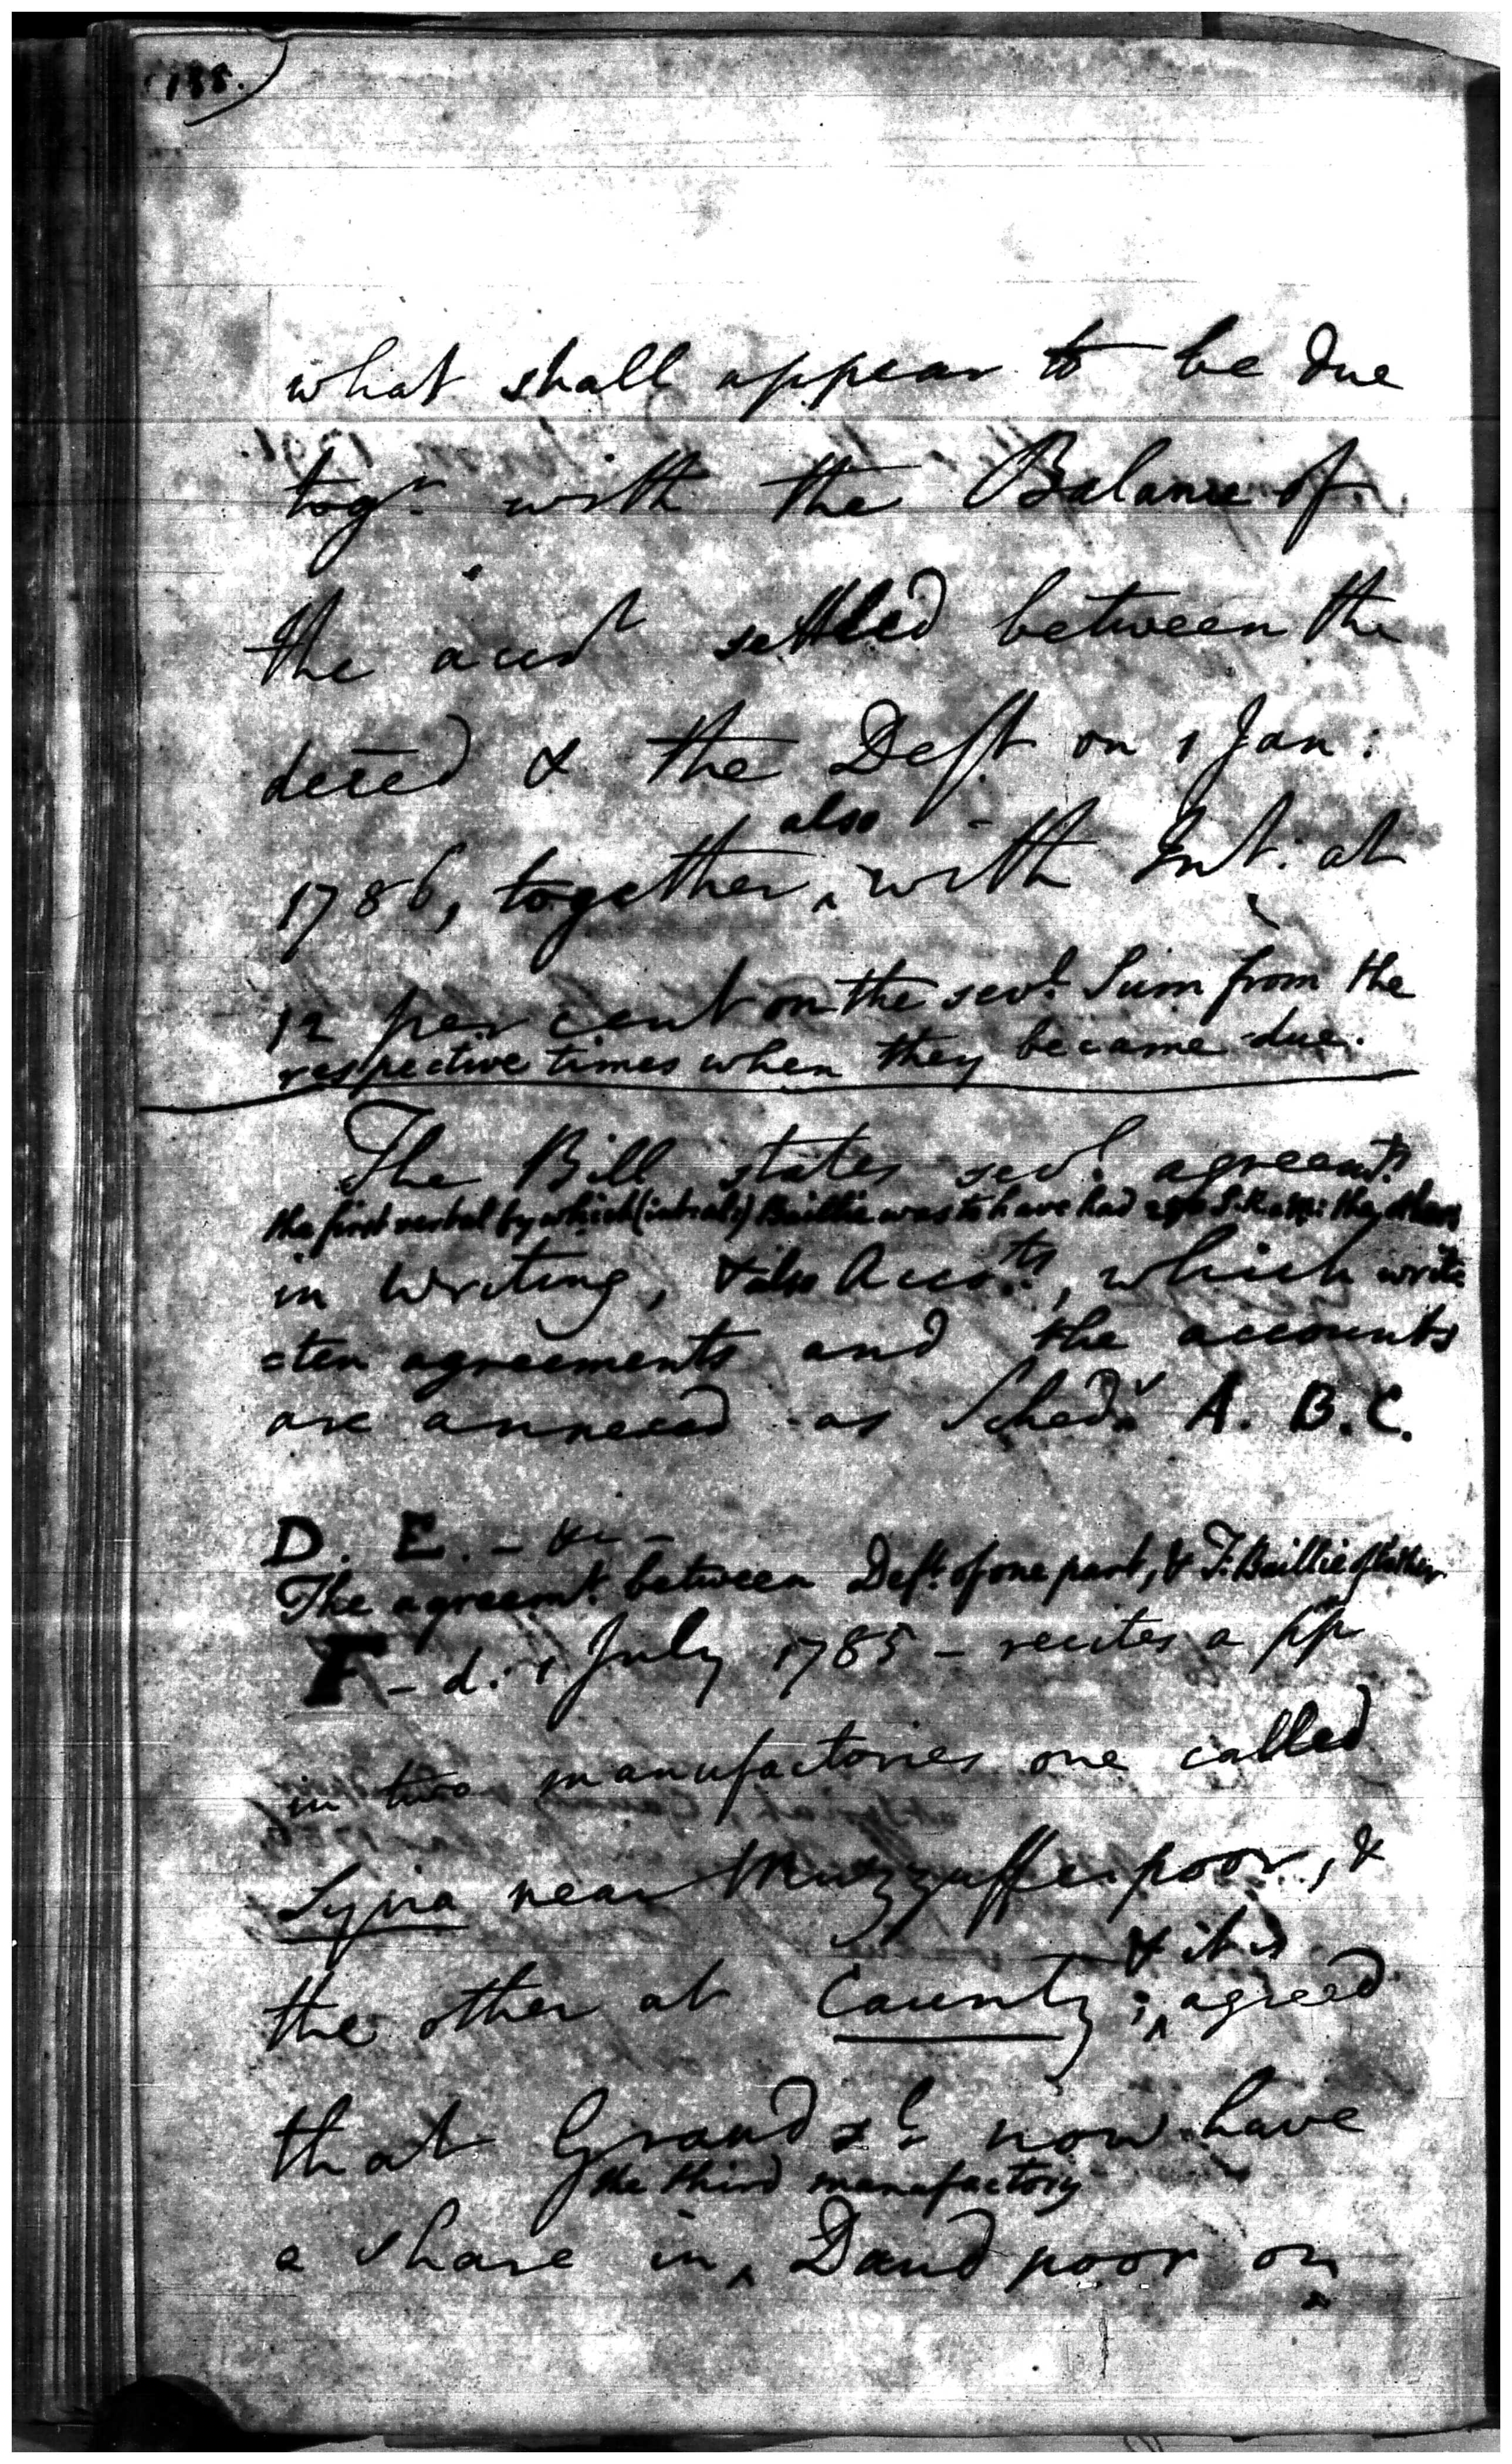 188.
what shall appear to be due
togr. with the Balance of
the acct settled between the
deced & the Deft. on 1 Jan:
also
1786, together ^ with Int. at
12 per cent on the sevl. Sum from the
respective times when they became due.
The Bill states sevl. agreemts.
the first verbal by which (inter al:) Baillie was to have had S.R. : the others
in Writing, & also Accots., which writ=
=ten agreements and the accounts
are annexed as Scheds. A. B. C.
D. E. - &c -
The agreemt. between Deft. of one part, & F. Baillie of tother
F - d. 1 July 1785 - recites a pp
in two manufactories one called
near Muzzufferpoor, &
& it is
the other at Caunty; ^ agreed
that Grand shl. now have
the third manufactory
a share in ^ Daudpoor on